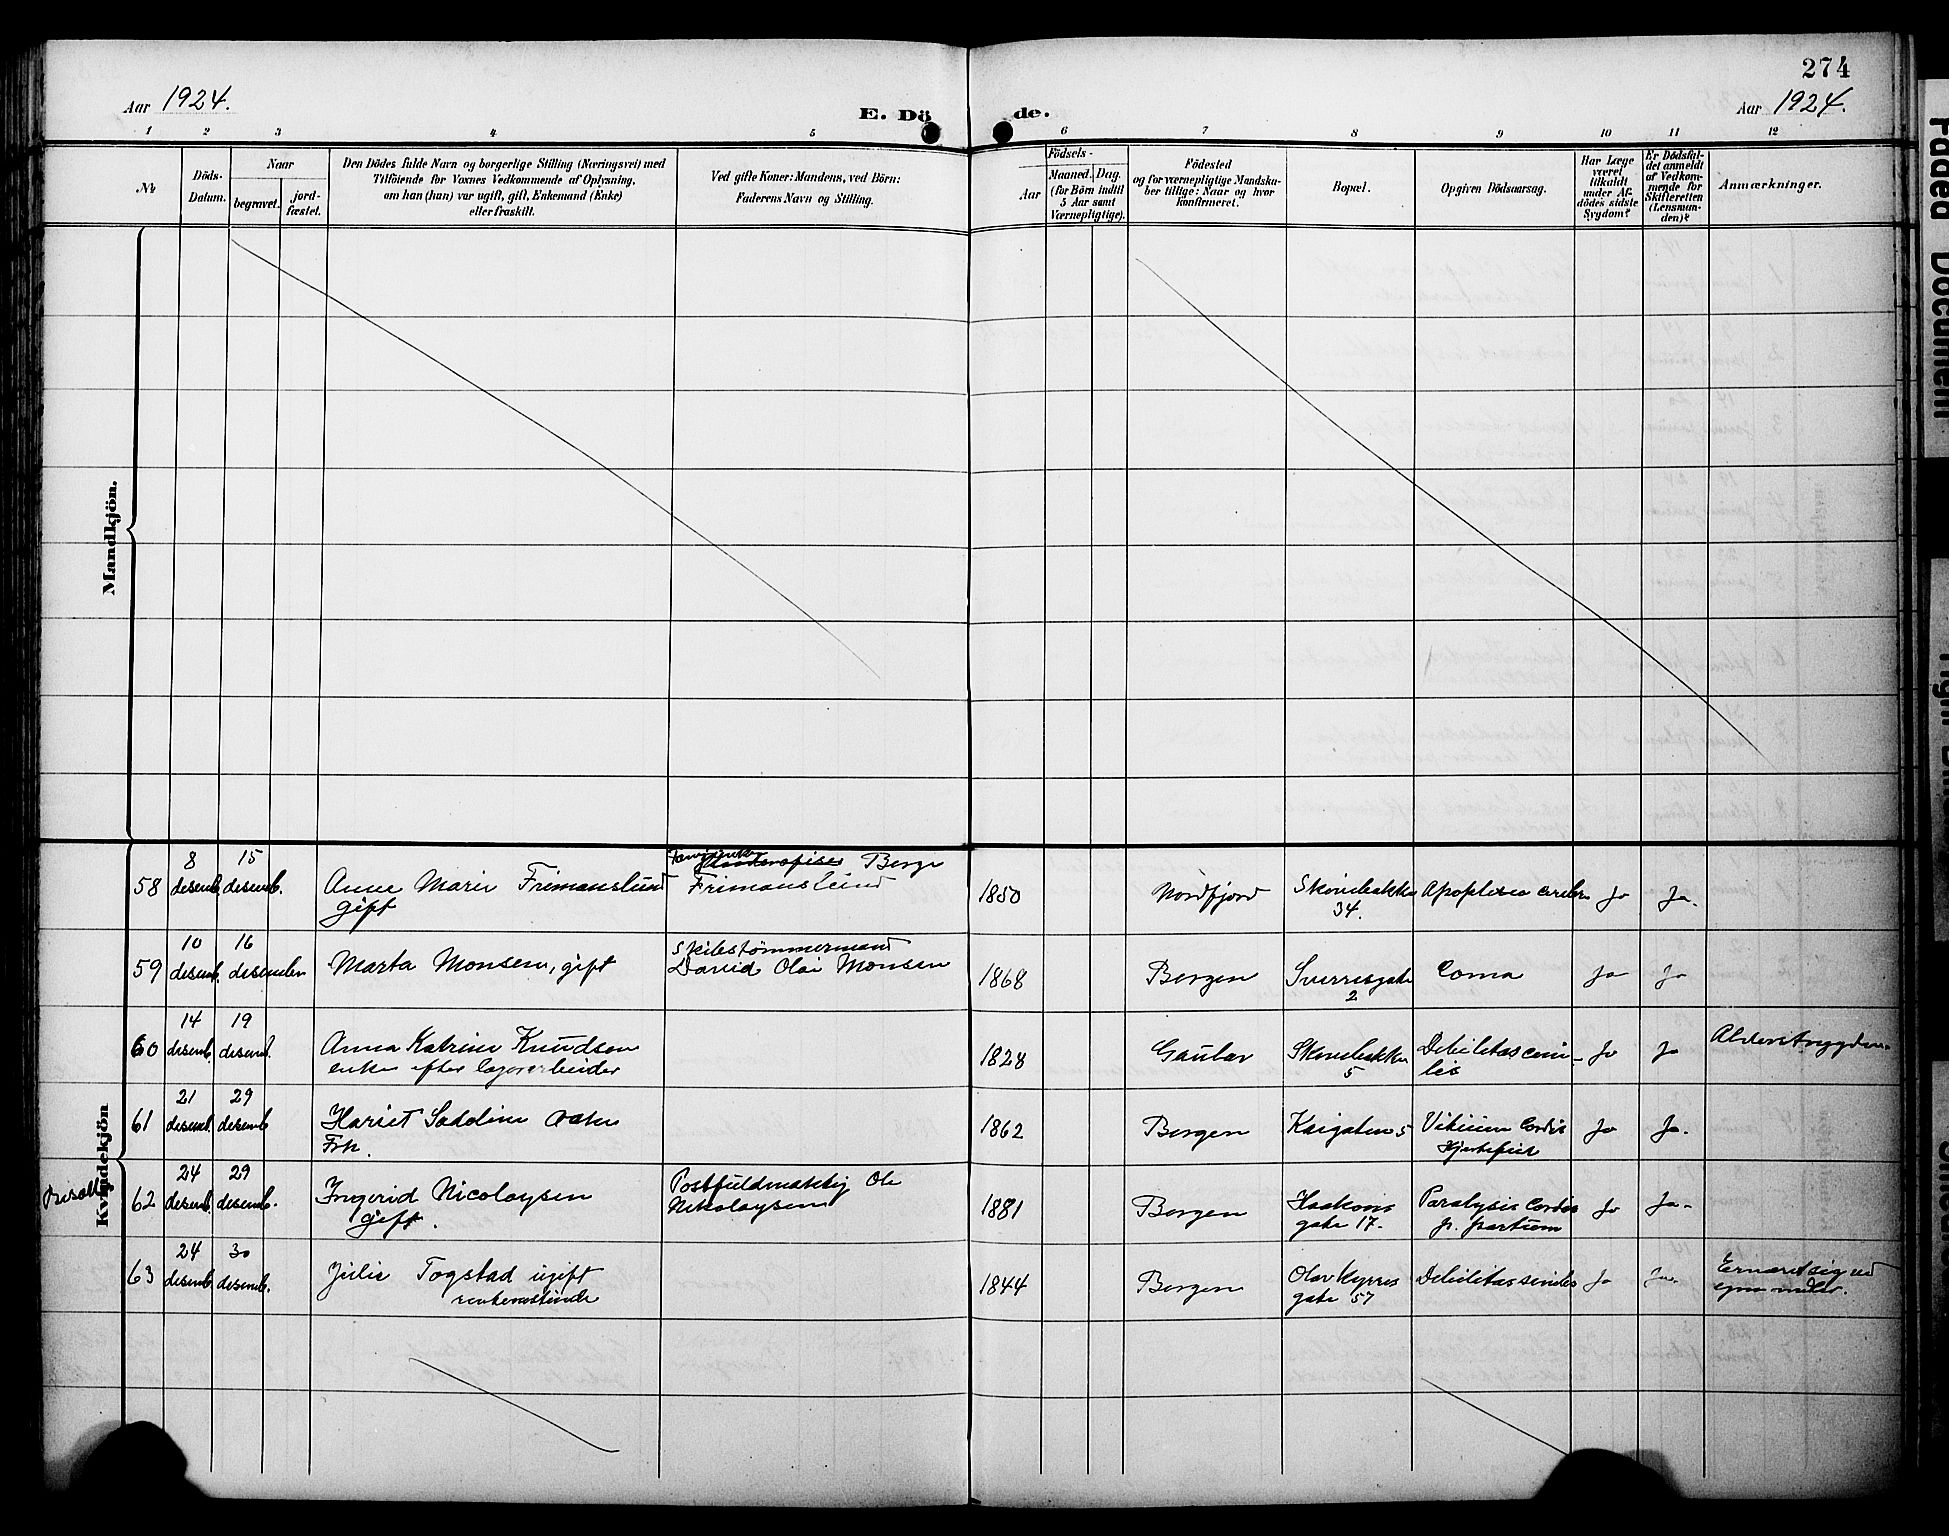 274
Aar 1924.
E. Döde.
Aar 1924.
1 2 3 4 5 6 7 8 9 10 11 12
No
Döds-Datum.
Naar
begravet.
jord-fæstet.
Den Dödes fulde Navn og borgerlige Stilling (Næringsvei) med
Tilföiende for Voxnes Vedkommende af Oplysning,
om han (hun) var ugift, gift, Enkemand (Enke)
eller fraskilt.
Ved gifte Koner: Mandens, ved Börn:
Faderens Navn og Stilling.
Födsels-
Aar
Maaned. Dag.
(for Börn indtil
5 Aar samt
Værnepligtige).
Födested
og for værnepligtige Mandska-
ber tillige: Naar og hvor
konfirmeret.
Bopæl.
Opgiven Dödsaarsag.
Har Læge
været
tilkaldt
under Af-
dödes sidste
Sygdom?
Er Dödsfal-
det anmeldt
af Vedkom-
mende for
Skifteretten
(Lensman-
den)?
Anmærkninger.
Mandkjön.
Kvindekjön
58 8 desemb. 15 desemb. Anne Marie Frimanslund gift Berge Frimanslund 1850 Nordfjord Skivebakken 34. Apoplexia cerebri Ja Ja.
59 10 desemb. 16 desember Marta Monsen, gift Skibstømmermand David Olai Monsen 1868 Bergen Sverresgate 2 Coma Ja Ja
60 14 desemb. 19 desemb. Anna Katrine Knudsen enke efter løsarbeider 1828 Gaular Skivebakken 5 Debilitas cenilis Ja Ja Alderstrygden
61 21 desemb. 29 desemb. Hariet Sadoline Frk. 1862 Bergen Kaigaten 5 Vitium Cordis Hjertefeil Ja Ja.
62 24 desemb. 29 desemb. Ingerid Nicolaysen gift. Postfuldmektig Ole Nikolaysen 1881 Bergen Haakons gate 17. Paralysis Cordis p. partum Ja Ja.
63 24 desemb. 30 desemb. Julie Togstad ugift 1844 Bergen Olav Kyrres gate 57 Debilitas senilis Ja Ja. Ernæret sig ved egne midler.